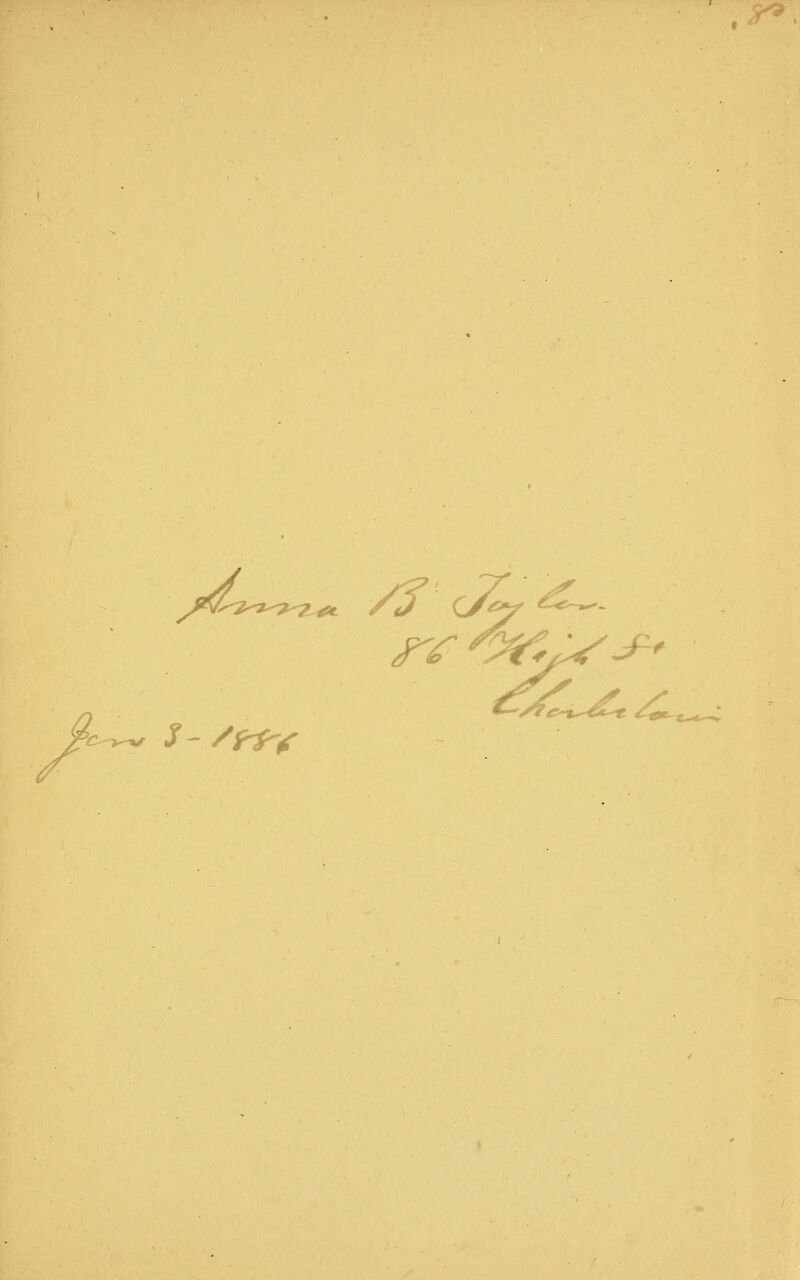 Anna B Tayler.
86 High St
Charlestown
Jan 3 - 1886